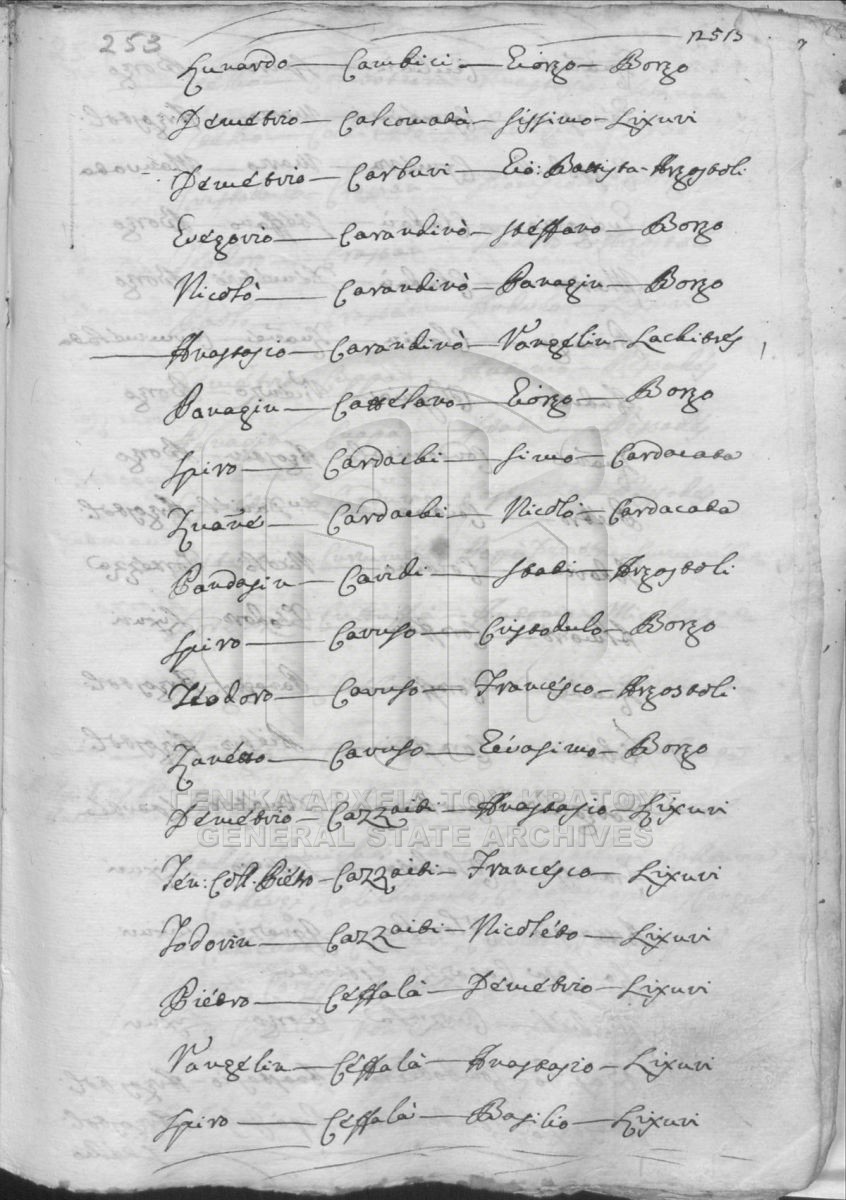 253 1253
Lunardo — Cambici — Giorgo — Borgo
Demetrio — Calcomatà — Sissimo — Lixuri
Demetrio — Carburi — Gio: Battista — Argostoli
Gregorio — Carandinò — Steffano — Borgo
Nicolò — Carandinò — Panagin — Borgo
Anastasio — Carandinò — Vangelin — Lachitres
Panagin — Castelano — Giorgo — Borgo
Spiro — Cardachi — Simo — Cardacata
Zuanè — Cardachi — Nicolò — Cardacata
Pandasin — Caridi — Stati — Argostoli
Spiro — Caruso — Cristodulo — Borgo
Teodoro — Caruso — Francesco — Argostoli
Zanetto — Caruso — Gerasimo — Borgo
ΓΕΝΙΚΑ ΑΡΧΕΙΑ ΤΟΥ ΚΡΑΤΟΥΣ
Demetrio — Cazzaiti — Anastasio — Lixuri
GENERAL STATE ARCHIVES
Ten: Coll: Pietro — Cazzaiti — Francesco — Lixuri
Todorin — Cazzaiti — Nicoleto — Lixuri
Pietro — Ceffalà — Demetrio — Lixuri
Vangelin — Ceffalà — Anastasio — Lixuri
Spiro — Ceffalà — Basilio — Lixuri